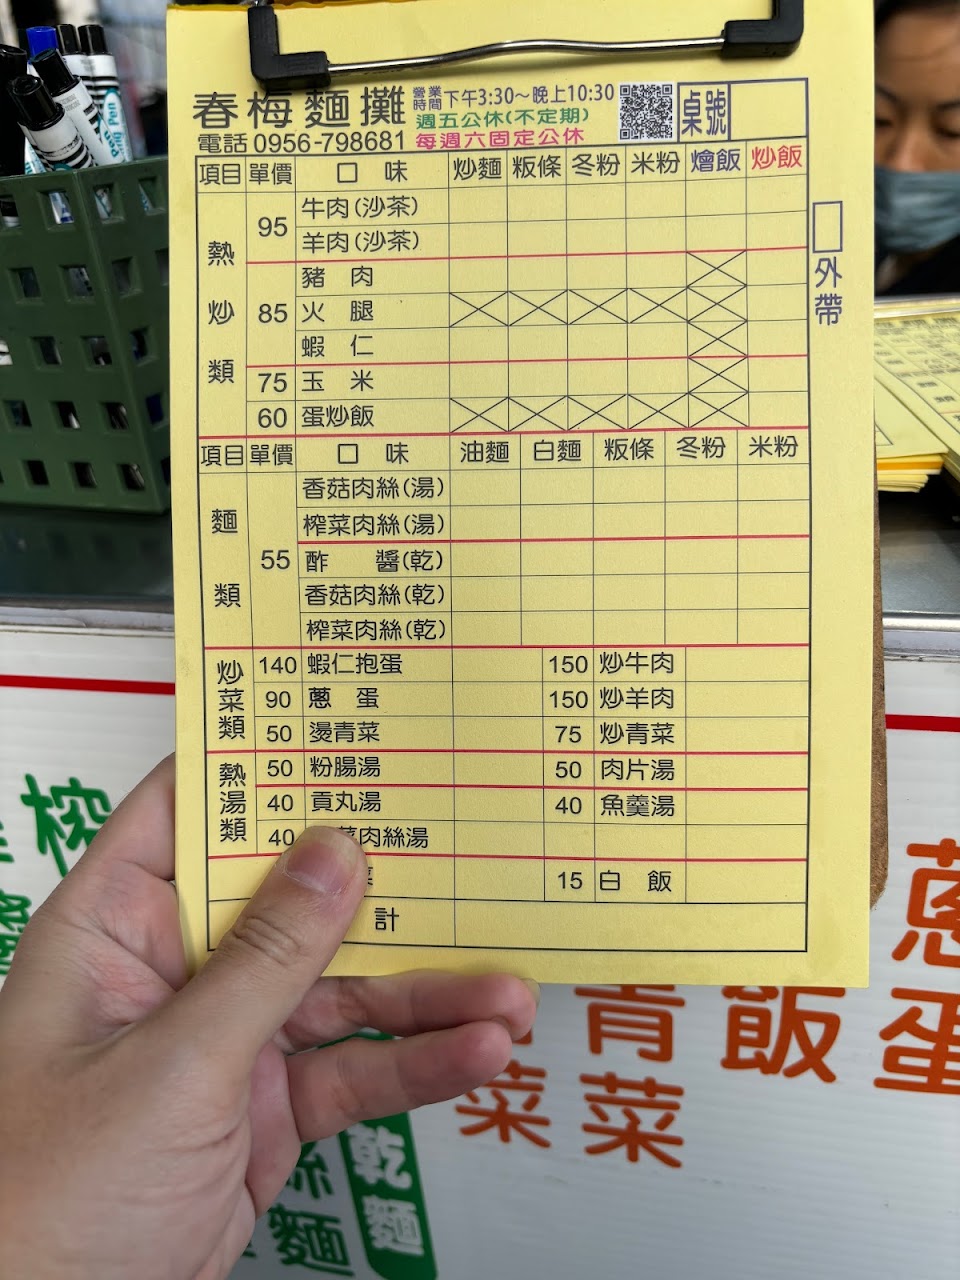 春梅麵攤
營業時間 下午3:30～晚上10:30
週五公休(不定期)
電話 0956-798681 每週六固定公休
桌號
外帶
項目 單價 口味 炒麵 粄條 冬粉 米粉 燴飯 炒飯
熱炒類
95 牛肉(沙茶)
羊肉(沙茶)
85 豬肉
火腿
蝦仁
75 玉米
60 蛋炒飯
項目 單價 口味 油麵 白麵 粄條 冬粉 米粉
麵類
55 香菇肉絲(湯)
榨菜肉絲(湯)
酢醬(乾)
香菇肉絲(乾)
榨菜肉絲(乾)
炒菜類
140 蝦仁抱蛋 150 炒牛肉
90 蔥蛋 150 炒羊肉
50 燙青菜 75 炒青菜
熱湯類
50 粉腸湯 50 肉片湯
40 貢丸湯 40 魚羹湯
40 菜肉絲湯
15 白飯
計
榨
蔥蛋
飯
青菜
菜
乾麵
絲麵